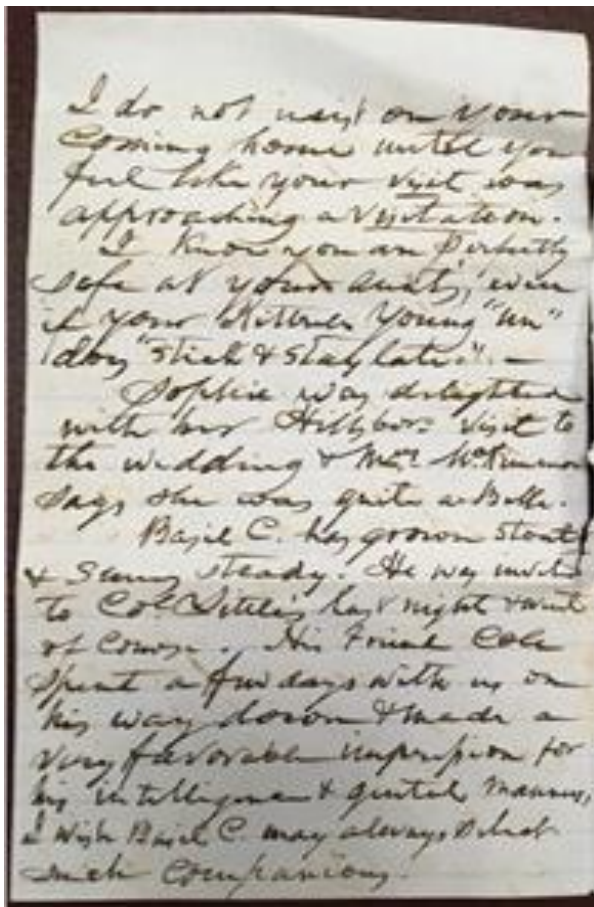 I do not insist on your
Coming home until you
feel like your visit was
approaching a visitation.
I Know you are perfectly
safe at your aunts, even
if your Young "un"
"Stick & Stay late". —
Sophie was delighted
with her Hillsboro visit to
the wedding & Mrs.
says she was quite a Belle.
Basil C. has grown Stout
& Seems steady. He was invited
to Col. last night & went
of Course. His Friend Cole
Spent a few days with us on
his way down & made a
very favorable impression for
his intelligence & genteel manners,
I wish Basil C. may always Select
such Companions.